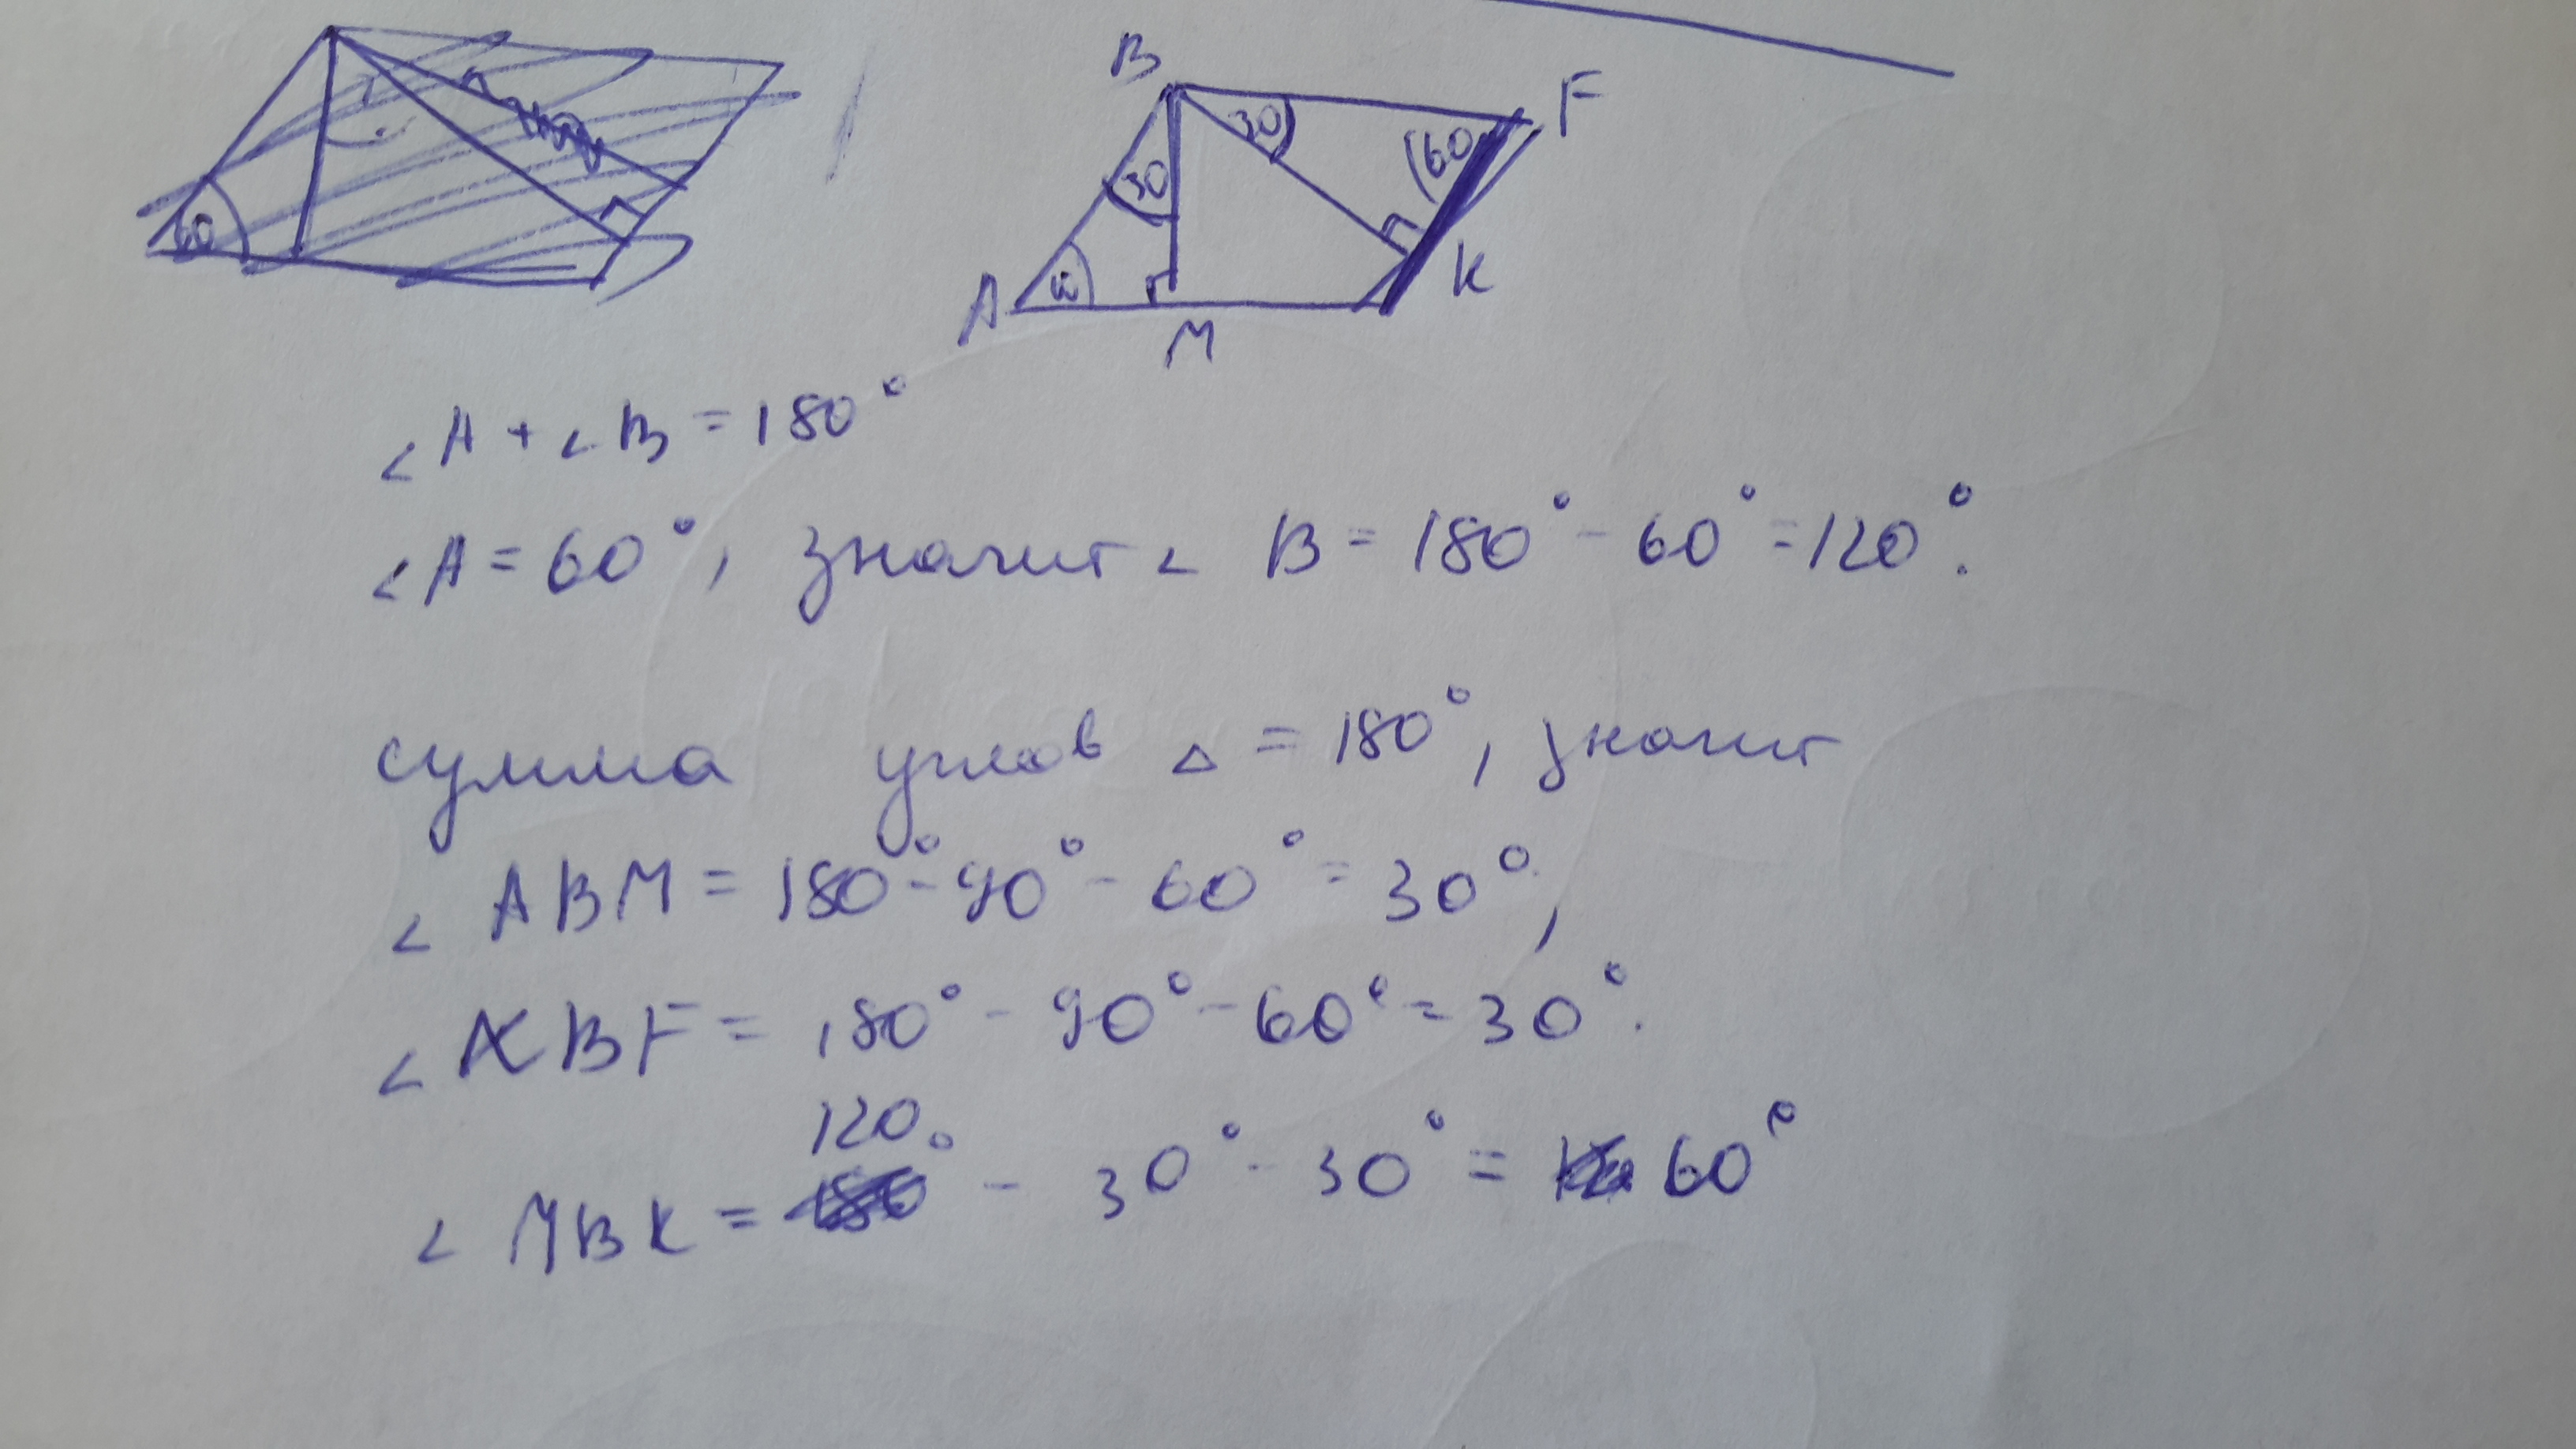 60
B
F
30
(60
30
A
K
M
∠A + ∠B = 180°
∠A = 60°, значит ∠ B = 180° - 60° = 120°.
сумма углов △ = 180°, значит
∠ ABM = 180° - 90° - 60° = 30°,
∠ KBF = 180° - 90° - 60° = 30°.
120°
∠ MBK = - 30° - 30° = 60°